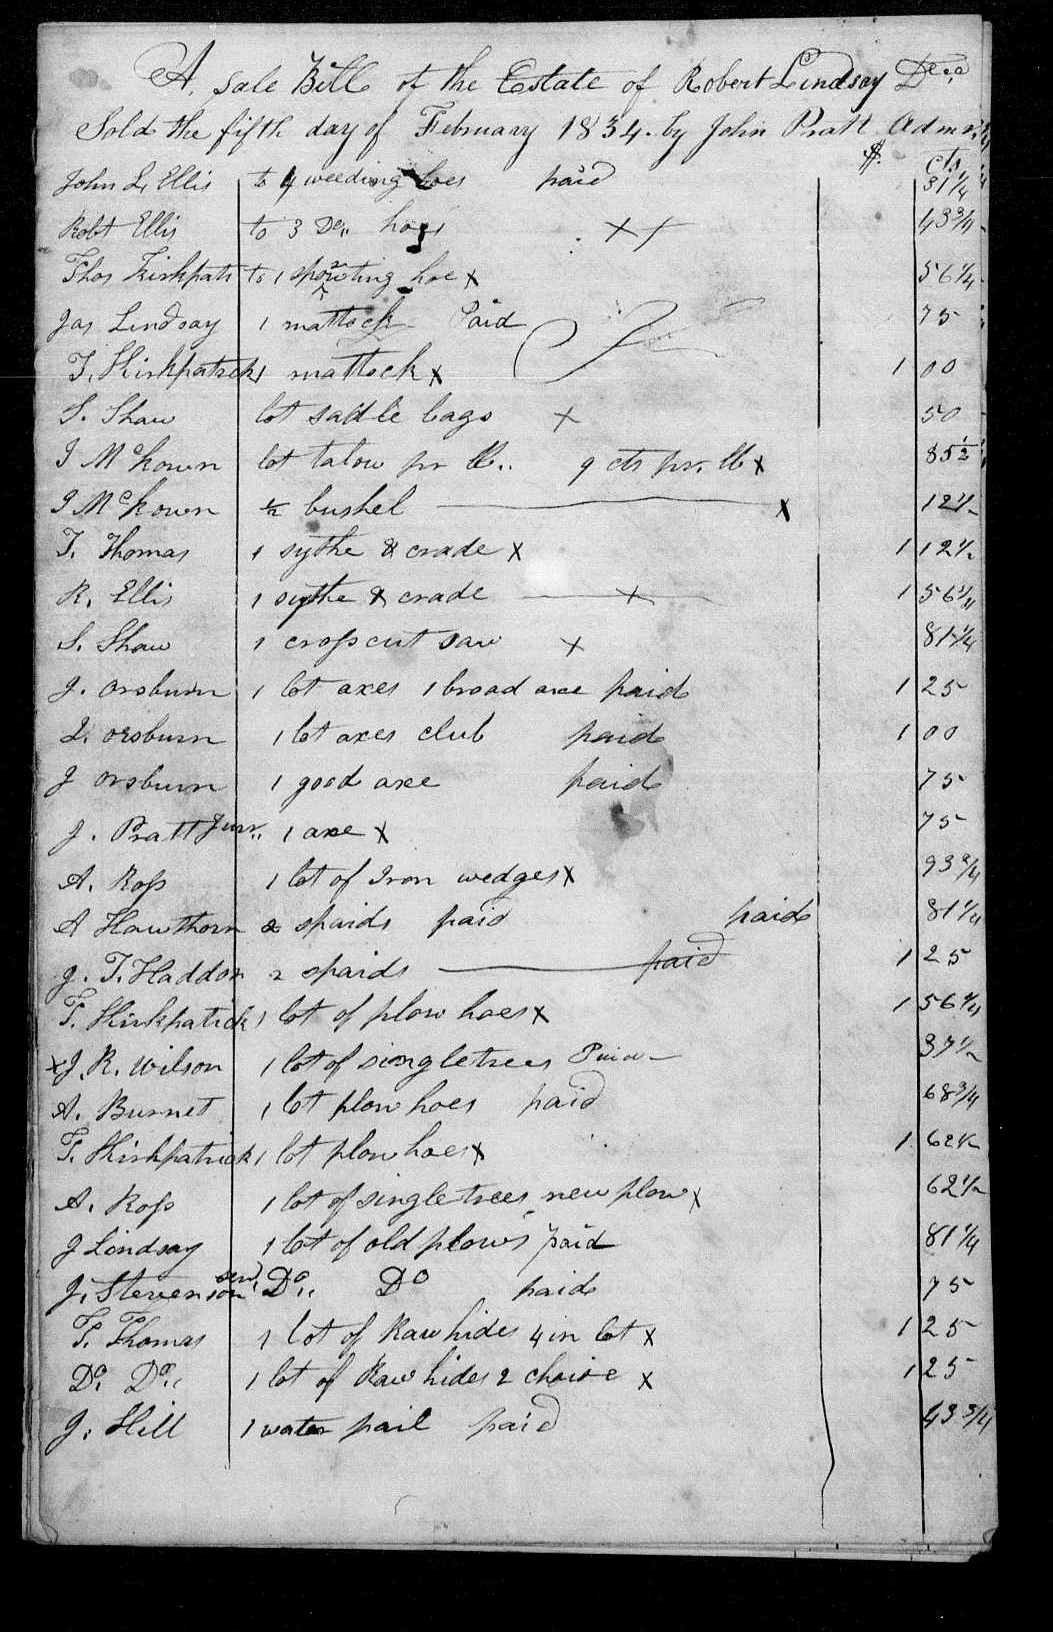 A. Sale Bill of the Estate of Robert Lindsay Decd
Sold the fifth day of February 1834. by John Pratt Admr.
$. cts
John L. Ellis to 4 weeding hoes paid 31 1/4
Robt Ellis to 3 Do,, hoes X X 43 3/4
Thos Kirkpatr to 1 sprouting hoe X 56 1/4
Jas Lindsay 1 mattock Paid 75
T. Kirkpatrick 1 mattock X 1 00
S. Shaw lot sadle bags X 50
J McKown lot talow pr lb.. 9 cts pr. lb X 85 1/2
J McKown 1/2 bushel X 12 1/2
T. Thomas 1 sythe & crade X 1 12 1/2
R. Ellis 1 sythe & crade X 1 56 1/4
S. Shaw 1 cross cut saw X 81 1/4
J. orsburn 1 lot axes 1 broad axe paid 1 25
J. orsburn 1 lot axes club paid 1 00
J orsburn 1 good axe paid 75
J. Pratt Junr.. 1 axe X 75
A. Ross 1 lot of Iron wedges X 93 3/4
A Hawthorn 2 spaids paid paid 81 1/4
J. T. Haddon 2 spaids paid 1 25
T. Kirkpatrick 1 lot of plow hoes X 1 56 1/4
X J. R. Wilson 1 lot of singletrees Paid 37 1/2
A. Burnet 1 lot plow hoes paid 68 3/4
T. Kirkpatrick 1 lot plow hoes X 1 62 1/2
A. Ross 1 lot of singletrees new plow X 62 1/2
J Lindsay 1 lot of old plows paid 81 1/4
J. Stevenson sen. Do,, Do paid 75
T. Thomas 1 lot of Raw hides 4 in lot X 1 25
Do. Do,, 1 lot of Raw hides 2 choise X 1 25
J. Hill 1 water pail paid 43 3/4